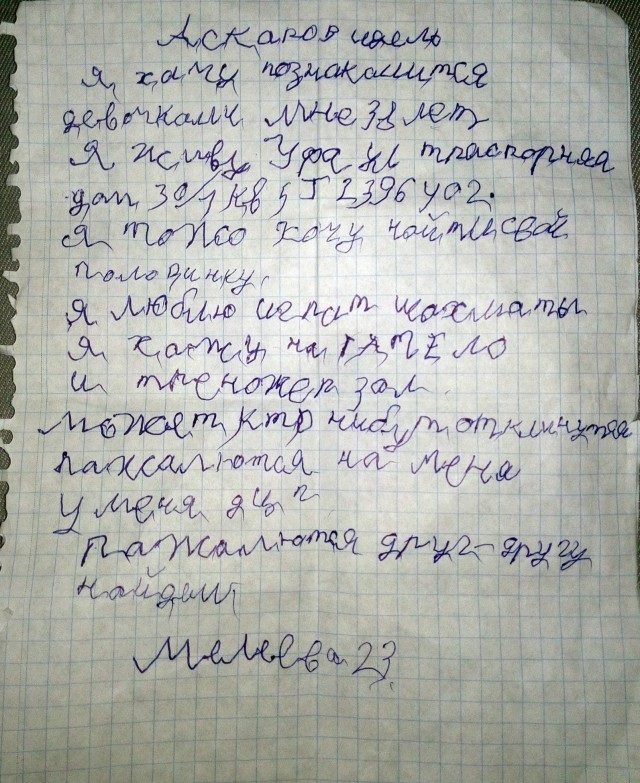 Аскаров идель
я хачу познакомится
девочками мне 38 лет
Я живу Уфа ул траспорная
дом 30/1 кв 5 Т 2396402.
Я тожо хочу найти свой
половинку.
я люблю играт шахматы
я хажу на ГАЧЕЛО
и треножер зал
может кто нибут откликнутся
пажалются на меня
у меня дцп
пажалются друг-другу
найдем